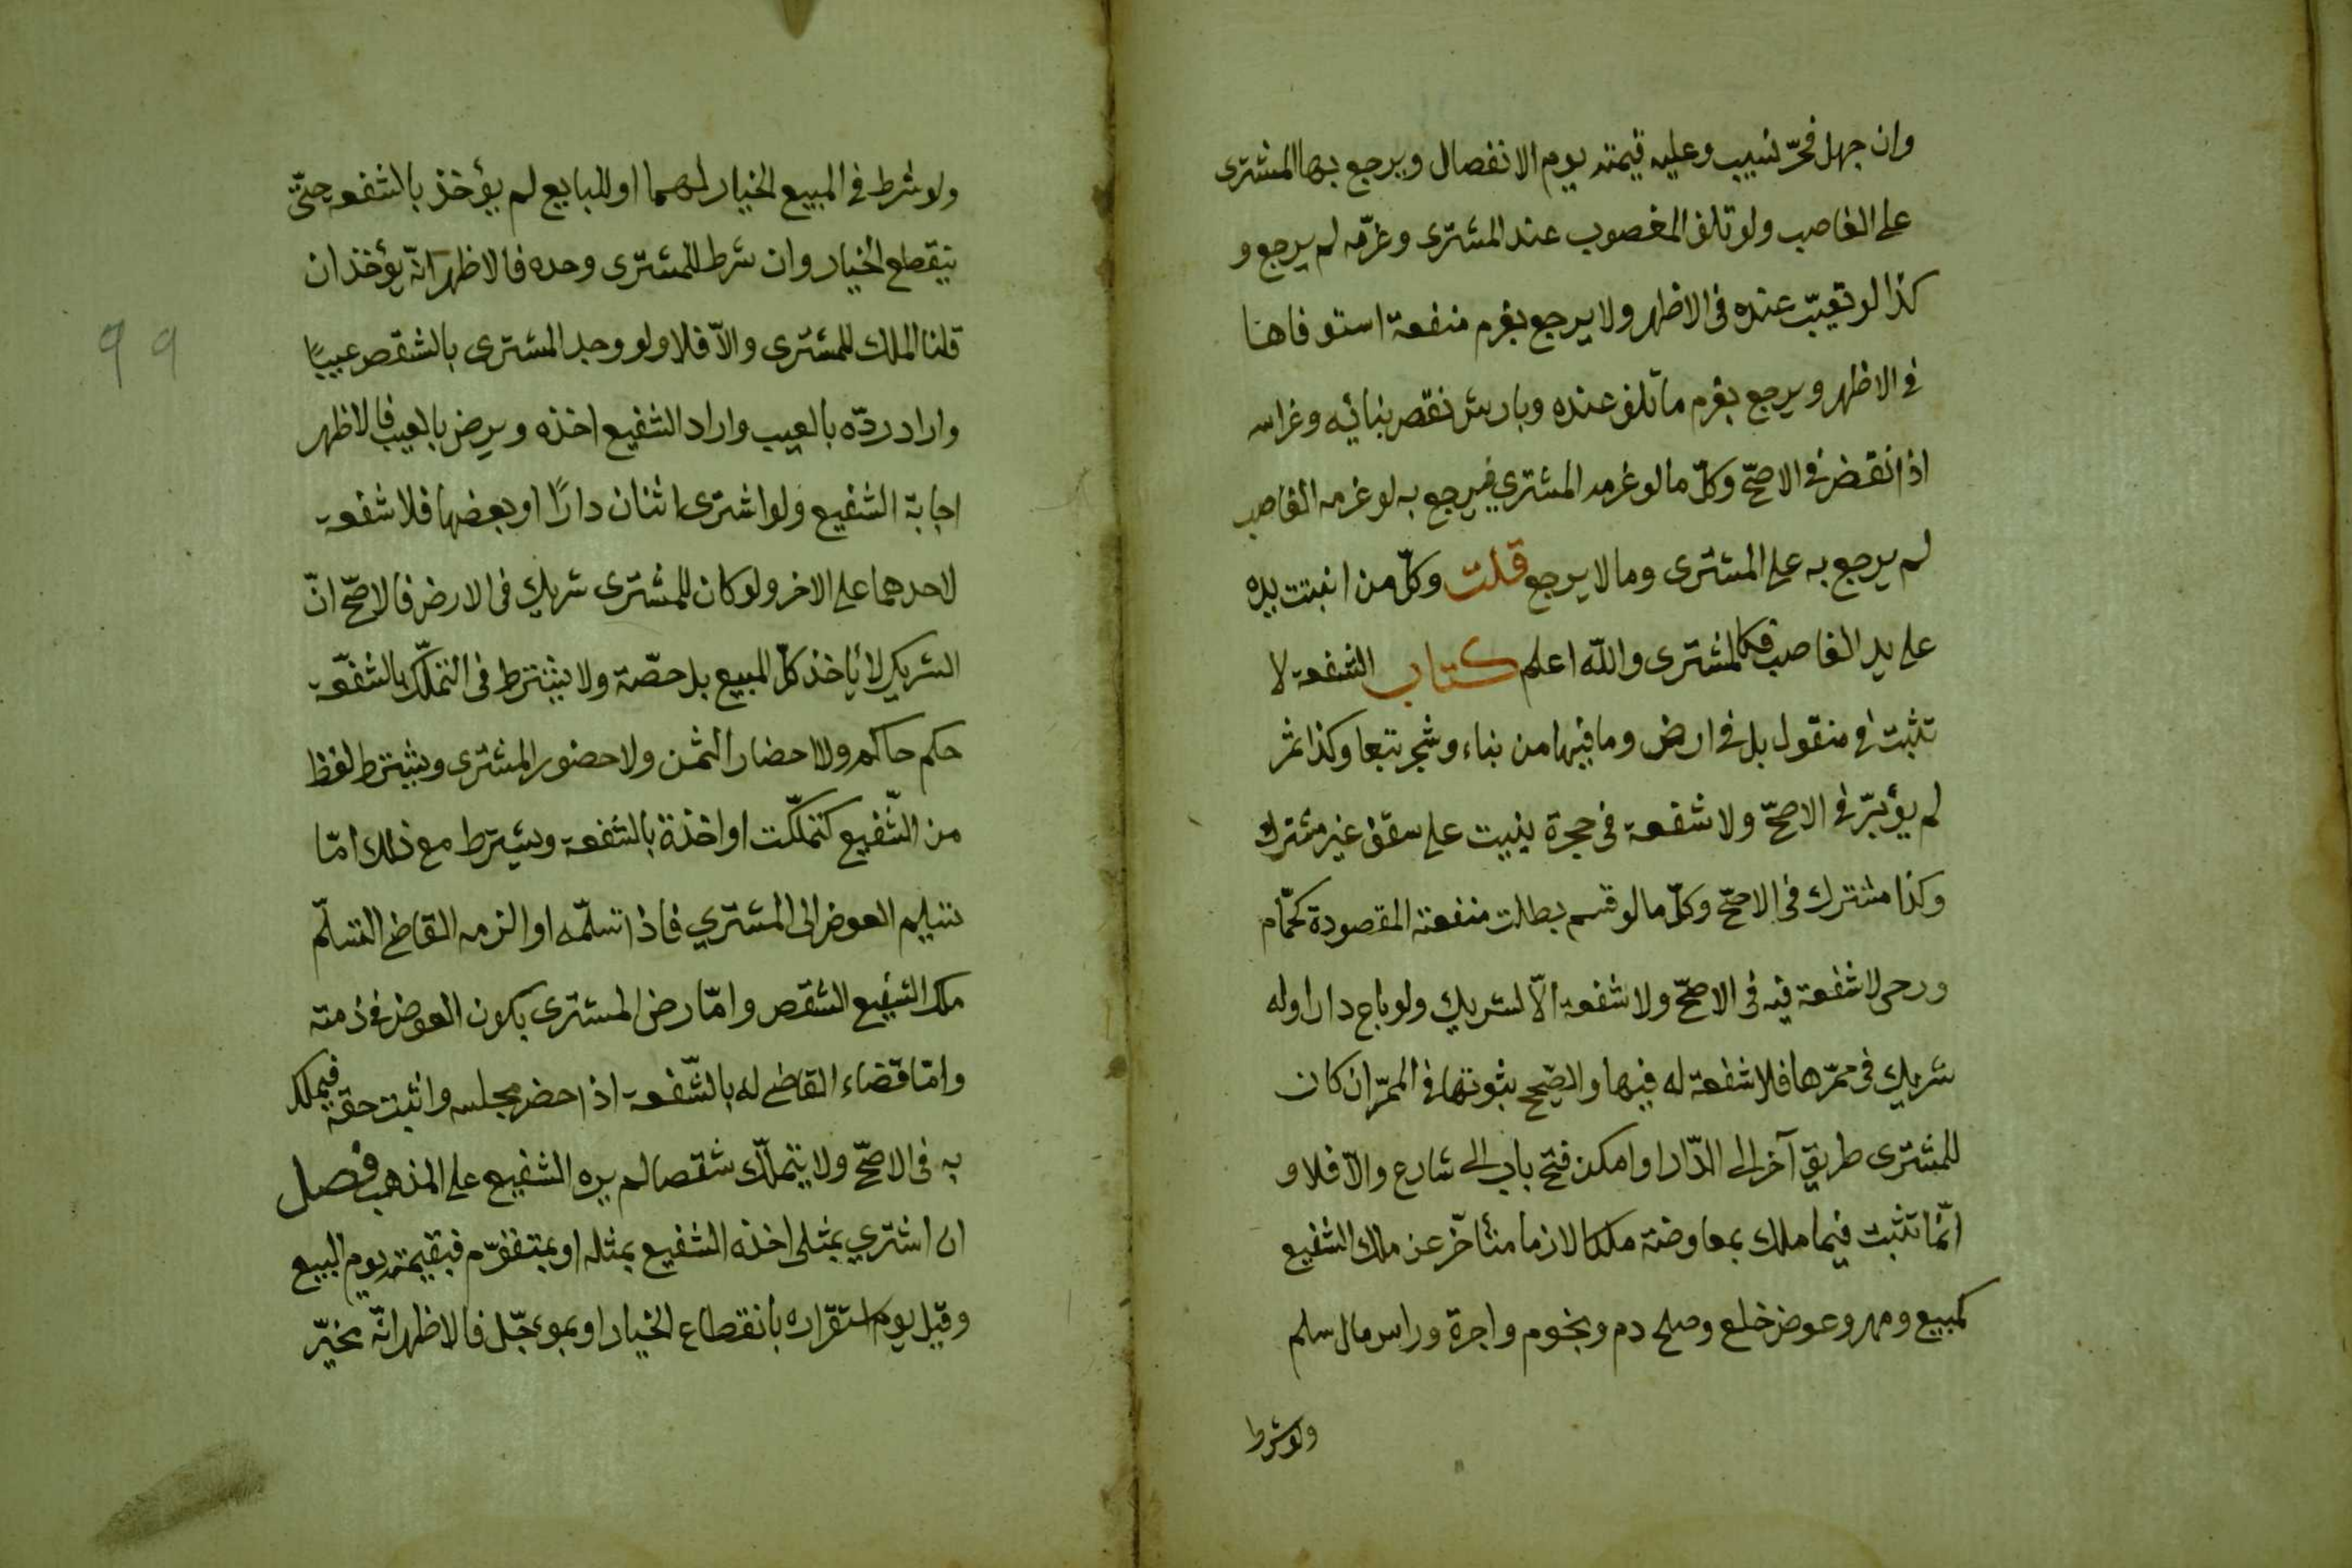 وان جهل فحرّ نسيب وعليه قيمته يوم الانفصال ويرجع بها المشترى
على الغاصب ولو تلف المغصوب عند المشترى وغرّمه لم يرجع و
كذا لو تعيّب عنده فى الاظهر ولا يرجع بغرم منفعة استوفاها
فى الاظهر ويرجع بغرم ما تلف عنده وبارش نقص بنائه وغراسه
اذا نقض فى الاصحّ وكلّ ما لو غرمه المشتري فيرجع به لو غرمه الغاصب
لم يرجع به على المشترى وما لا يرجع قلت وكلّ من انبتت يده
على يد الغاصب فكالمشترى والله اعلم كتاب الشفعة لا
تثبت فى منقول بل فى ارض وما فيها من بناء وشجر تبعا وكذا ثمر
لم يؤبّر فى الاصحّ ولا شفعة فى حجرة بنيت على سقف غير مشترك
وكذا مشترك فى الاصحّ وكلّ ما لو قسم بطلت منفعته المقصودة كحمّام
ورحى لا شفعة فيه فى الاصحّ ولا شفعة الّا لشريك ولو باع دارا وله
شريك فى ممرّها فلا شفعة له فيها والصّحيح بثوتها فى الممرّ ان كان
للمشترى طريق آخر الى الدّار او امكن فتح باب الى شارع والّا فلا و
انّما تثبت فيما ملك بمعاوضة ملكا لازما متأخّر عن ملك الشفيع
كمبيع ومهر وعوض خلع وصلح دم ونجوم واجرة وراس مال سلم
ولو شرط
99
ولو شرط فى المبيع الخيار لهما او للبايع لم يؤخذ بالشفعة حتّى
ينقطع الخيار وان شرط للمشترى وحده فالاظهر انّه يؤخذ ان
قلنا الملك للمشترى والّا فلا ولو وجد المشترى بالشقص عيبًا
واراد ردّه بالعيب واراد الشفيع اخذه ويرض بالعيب فالاظهر
اجابة الشفيع ولو اشترى اثنان دارًا او بعضها فلا شفعة
لاحدهما على الاخر ولو كان للمشترى شريك فى الارض فالاصحّ انّ
الشريك لا يأخذ كلّ المبيع بل حصّة ولا يشترط فى التملّك بالشفعة
حكم حاكم ولا احضار الثمن ولا حضور المشترى ويشترط لفظ
من الشّفيع كتملّكت او اخذة بالشفعة ويشترط مع ذلك امّا
تسليم العوض الى المشتري فاذا تسلّمه او الزمه القاضى التسلّم
ملك الشفيع الشقص وامّا رض المشترى بكون العوض فى ذمته
وامّا قضاء القاضى له بالشّفعة اذا حضر مجلسه واثبت حقّه فيملك
به فى الاصحّ ولا يتملّك شقصا لم يره الشفيع على المذهب فصل
ان اشتري بمثلى اخذه الشفيع بمثله او بمتقوّم فبقيمته يوم البيع
وقيل يوم استقراره بانقطاع الخيار او بموءجّل فالاظهر انّه مخيّر